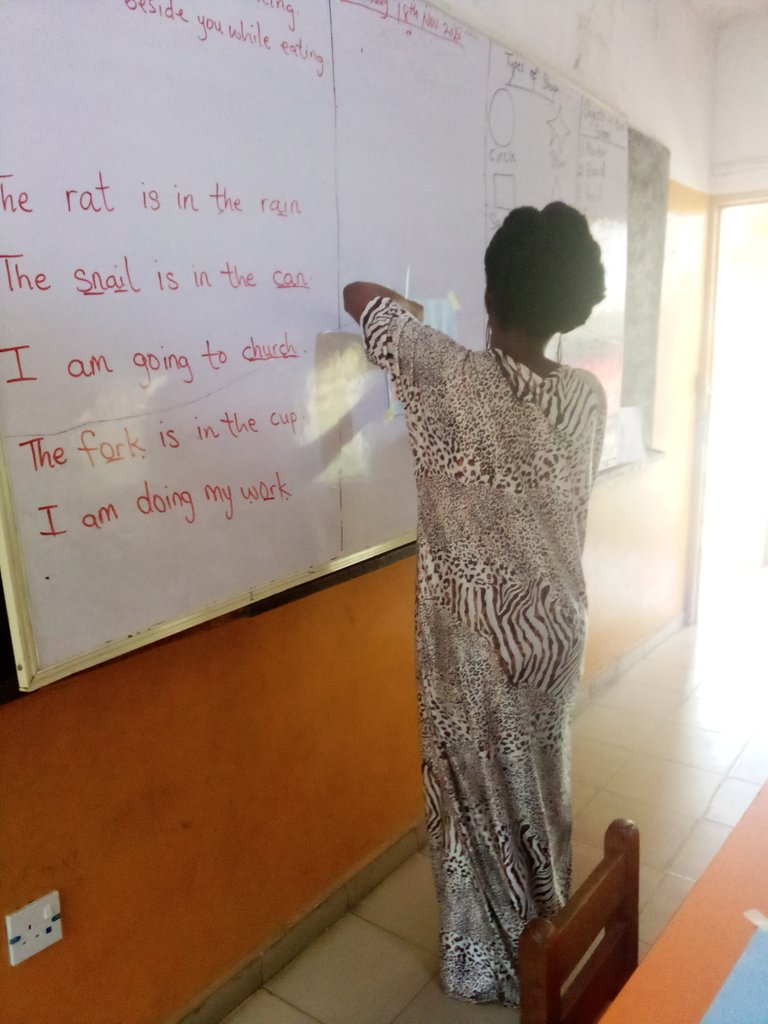 beside you while eating
18th Nov 2020
The rat is in the rain
The snail is in the can.
I am going to church.
The fork is in the cup
I am doing my work
Types of Shape
Circle
Star